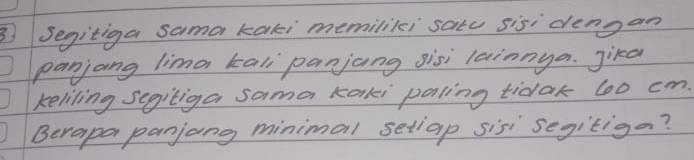 3) Segitiga sama kaki memiliki satu sisi dengan
panjang lima kali panjang sisi lainnya. Jika
keliling segitiga sama kaki paling tidak 60 cm.
Berapa panjang minimal setiap sisi segitiga?